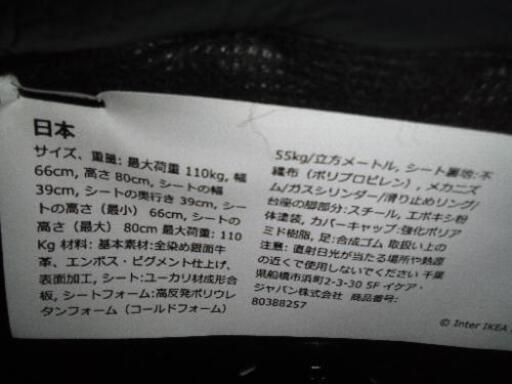 日本
サイズ、重量: 最大荷重 110kg, 幅
66cm, 高さ 80cm, シートの幅
39cm, シートの奥行き 39cm, シー
トの高さ（最小） 66cm, シートの
高さ（最大） 80cm 最大荷重: 110
Kg 材料: 基本素材: 全染め銀面牛
革、エンボス・ピグメント仕上げ、
表面加工, シート:ユーカリ材成形合
板, シートフォーム:高反発ポリウレ
タンフォーム（コールドフォーム）
55kg/立方メートル, シート裏地:不
織布（ポリプロピレン）, メカニズ
ム/ガスシリンダー/滑り止めリング/
台座の脚部分: スチール, エポキシ粉
体塗装, カバーキャップ: 強化ポリア
ミド樹脂, 足:合成ゴム 取扱い上の
注意: 直射日光が当たる場所や熱源
の近くで使用しないでください 千葉
県船橋市浜町2-3-30 5F イケア・
ジャパン株式会社 商品番号:
80388257
© Inter IKEA